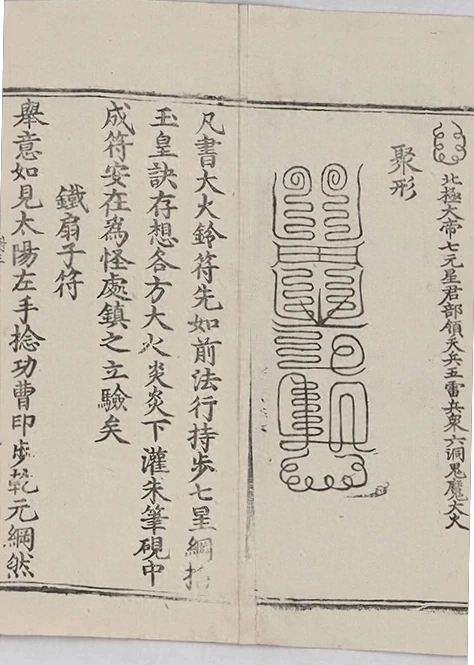 北極大帝七元星君部領天兵五雷兵衆六洞鬼魔大火
聚形
凡書大火鈴符先如前法行持步七星綱掐
玉皇訣存想各方大火炎炎下灌朱筆硯中
成符安在爲怪處鎮之立驗矣
鐵扇子符
舉意如見太陽左手捻功曹印步乾元綱然